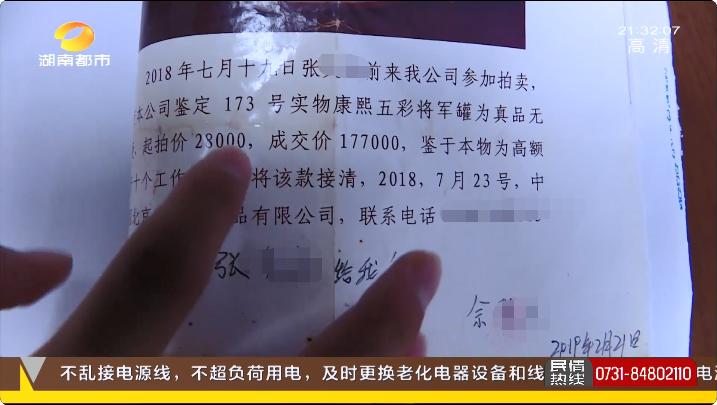 湖南都市
21:32:07
高清
2018年七月十九日张 前来我公司参加拍卖,
本公司鉴定 173 号实物康熙五彩将军罐为真品无
起拍价 28000, 成交价 177000, 鉴于本物为高额
十个工作 将该款接清, 2018, 7月23号, 中
北京 品有限公司, 联系电话
张 给我
佘
2019年2月21日
不乱接电源线,不超负荷用电,及时更换老化电器设备和线
民情热线
0731-84802110
电